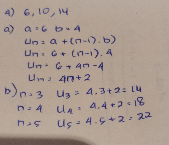 4) 6, 10, 14
a) a = 6 b = 4
Un = a + (n-1).b)
Un = 6 + (n-1).4
Un = 6 + 4n - 4
Un = 4n + 2
b) n=3 U3 = 4.3+2 = 14
n=4 U4 = 4.4+2 = 18
n=5 U5 = 4.5+2 = 22